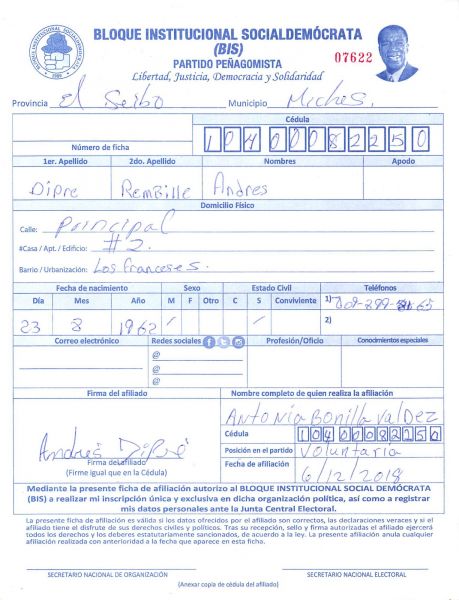 BLOQUE INSTITUCIONAL SOCIALDEMÓCRATA
(BIS)
PARTIDO PEÑAGOMISTA
07622
Libertad, Justicia, Democracia y Solidaridad
Provincia El Seibo Municipio Miches.
Cédula
Número de ficha 10400082250
1er. Apellido 2do. Apellido Nombres Apodo
Dipre Rembille Andres
Domicilio Físico
Calle: Principal
#Casa / Apt. / Edificio: #2.
Barrio / Urbanización: Los franceses.
Fecha de nacimiento Sexo Estado Civil Teléfonos
Día Mes Año M F Otro C S Conviviente 1)
23 8 1962 / / 2)
Correo electrónico Redes sociales Profesión/Oficio Conocimientos especiales
@
@
@
Firma del afiliado Nombre completo de quien realiza la afiliación
Antonia Bonilla Valdez
Cédula 10400082150
Andres Dipré Posición en el partido Voluntaria
Firma del afiliado Fecha de afiliación 6/12/2018
(Firme igual que en la Cédula)
Mediante la presente ficha de afiliación autorizo al BLOQUE INSTITUCIONAL SOCIAL DEMÓCRATA
(BIS) a realizar mi inscripción única y exclusiva en dicha organización política, así como a registrar
mis datos personales ante la Junta Central Electoral.
La presente ficha de afiliación es válida si los datos ofrecidos por el afiliado son correctos, las declaraciones veraces y si el
afiliado tiene el disfrute de sus derechos civiles y políticos. Tras su recepción, sello y firma autorizados el afiliado ejercerá
todos los derechos y los deberes estatutariamente sancionados, de acuerdo a la ley. La presente afiliación anula cualquier
afiliación realizada con anterioridad a la fecha que aparece en esta ficha.
SECRETARIO NACIONAL DE ORGANIZACIÓN SECRETARIO NACIONAL ELECTORAL
(Anexar copia de cédula del afiliado)